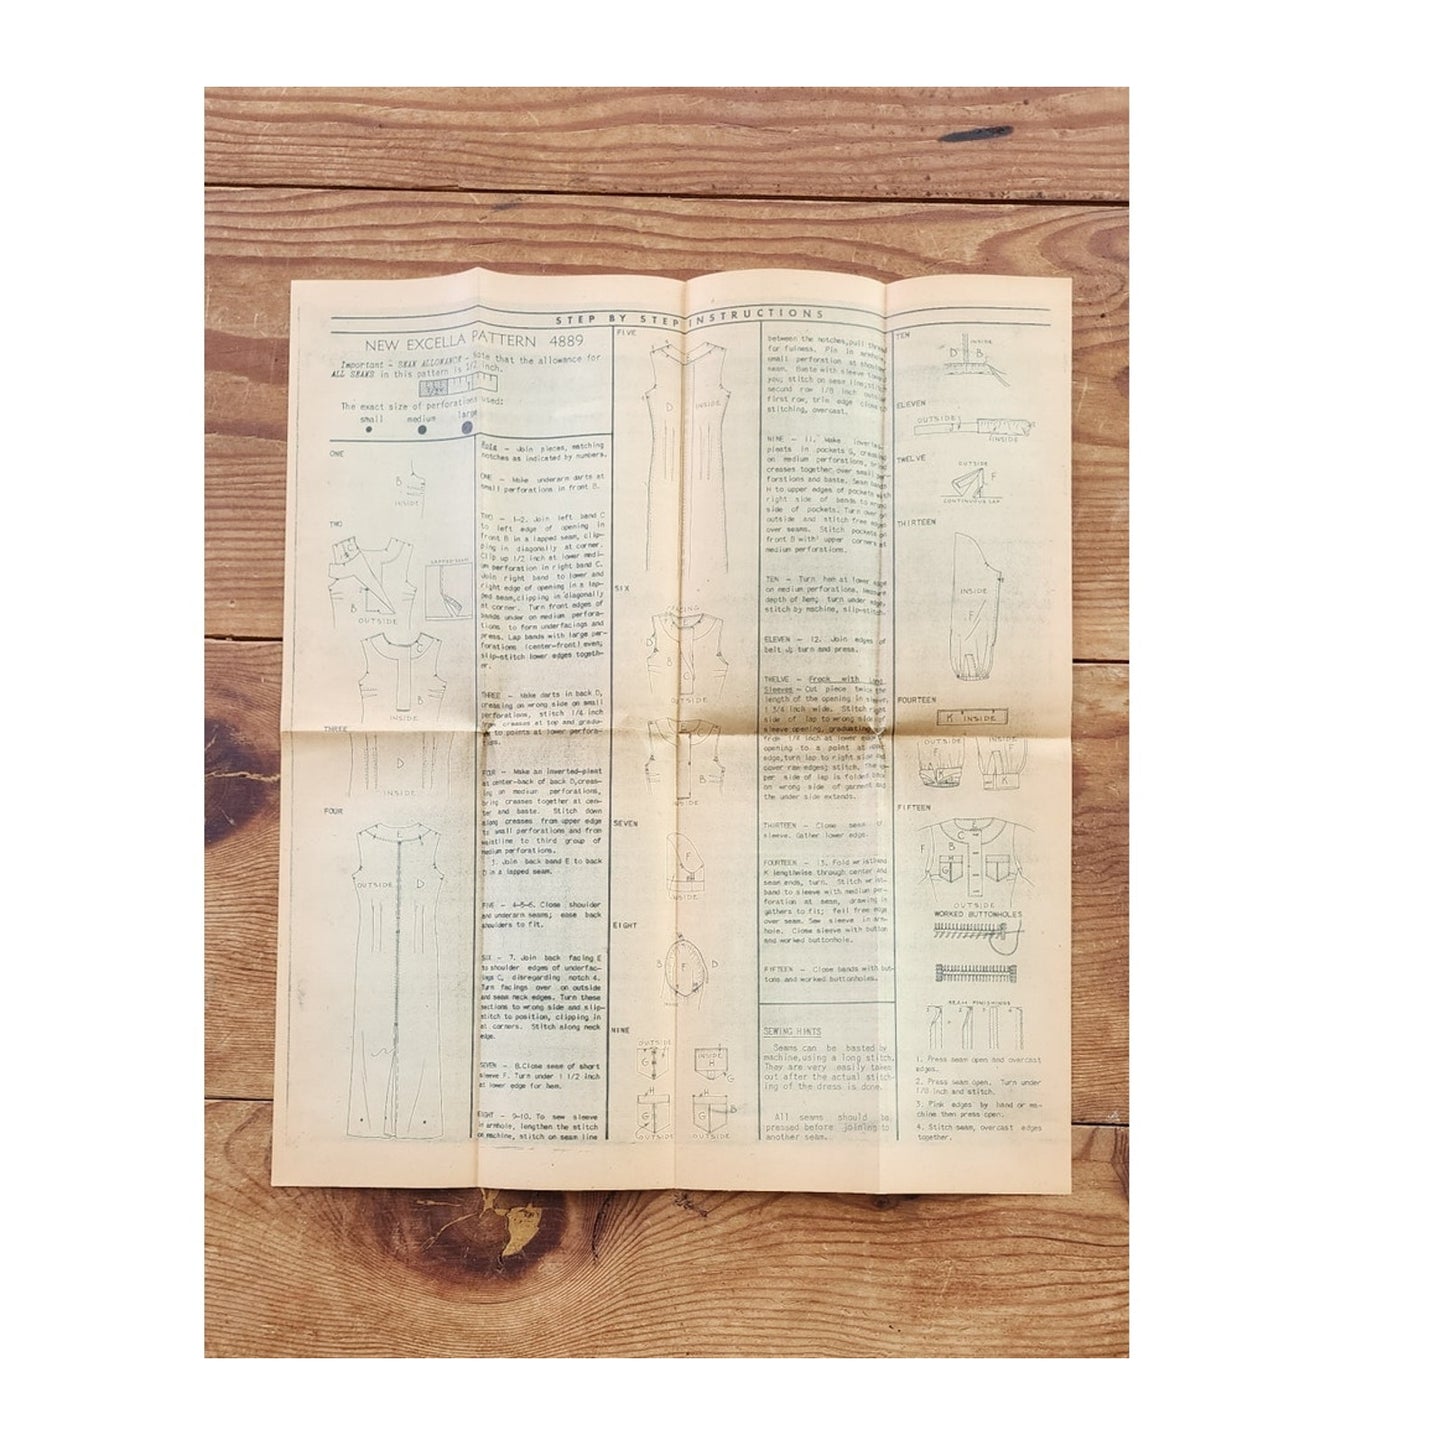 STEP BY STEP INSTRUCTIONS
NEW EXCELLA PATTERN 4889
Important - SEAM ALLOWANCE - Note that the allowance for
ALL SEAMS in this pattern is 1/2 inch.
The exact size of perforations used:
small medium large
ONE
B
INSIDE
TWO
C
LAPPED SEAM
B
OUTSIDE
C
B
INSIDE
THREE
D
INSIDE
FOUR
E
OUTSIDE D
Join pieces, matching
notches as indicated by numbers.
ONE - Make underarm darts at
small perforations in front B.
TWO - 1-2. Join left band C
to left edge of opening in
front B in a lapped seam, clip-
ping in diagonally at corner.
Clip up 1/2 inch at lower medi-
um perforation in right band C.
Join right band to lower and
right edge of opening in a lap-
ped seam, clipping in diagonally
at corner. Turn front edges of
bands under on medium perfora-
tions to form underfacings and
press. Lap bands with large per-
forations (center-front) even;
slip-stitch lower edges togeth-
er.
THREE - Make darts in back D,
creasing on wrong side on small
perforations, stitch 1/4 inch
from creases at top and gradu-
ate to points at lower perfora-
tions.
FOUR - Make an inverted-pleat
at center-back of back D, creas-
ing on medium perforations,
bring creases together at cen-
ter and baste. Stitch down
along creases from upper edge
to small perforations and from
waistline to third group of
medium perforations.
3. Join back band E to back
D in a lapped seam.
FIVE - 4-5-6. Close shoulder
and underarm seams; ease back
shoulders to fit.
SIX - 7. Join back facing E
to shoulder edges of underfac-
ings C, disregarding notch 4.
Turn facings over on outside
and seam neck edges. Turn these
sections to wrong side and slip-
stitch to position, clipping in
at corners. Stitch along neck
edge.
SEVEN - 8. Close seam of short
sleeve F. Turn under 1 1/2 inch
at lower edge for hem.
EIGHT - 9-10. To sew sleeve
in armhole, lengthen the stitch
on machine, stitch on seam line
FIVE
D INSIDE
SIX
FACING
D
B
C
OUTSIDE
D
B
INSIDE
SEVEN
F
INSIDE
EIGHT
B F D
NINE
OUTSIDE
G
INSIDE
H
G
H
G
OUTSIDE
H
G B
OUTSIDE
between the notches, pull thread
for fulness. Pin in armhole,
small perforation at shoulder
seam. Baste with sleeve toward
you; stitch on seam line, stitch
second row 1/8 inch outside
first row, trim edge close to
stitching, overcast.
NINE - 11. Make inverted-
pleats in pockets G, creasing
on medium perforations, bring
creases together over small per-
forations and baste. Seam bands
H to upper edges of pockets with
right side of bands to wrong
side of pockets. Turn over on
outside and stitch free edges
over seams. Stitch pockets on
front B with upper corners at
medium perforations.
TEN - Turn hem at lower edge
on medium perforations, measure
depth of hem; turn under edge,
stitch by machine, slip-stitch.
ELEVEN - 12. Join edges of
belt J; turn and press.
TWELVE - Frock with Long
Sleeves - Cut piece twice the
length of the opening in sleeve,
1 3/4 inch wide. Stitch right
side of lap to wrong side of
sleeve opening, graduating
from 1/4 inch at lower edge of
opening to a point at upper
edge, turn lap to right side and
cover raw edges; stitch. The up-
per side of lap is folded back
on wrong side of garment and
the under side extends.
THIRTEEN - Close seam of
sleeve. Gather lower edge.
FOURTEEN - 13. Fold wristband
K lengthwise through center and
seam ends, turn. Stitch wrist-
band to sleeve with medium per-
foration at seam, drawing in
gathers to fit; fell free edge
over seam. Sew sleeve in arm-
hole. Close sleeve with button
and worked buttonhole.
FIFTEEN - Close bands with but-
tons and worked buttonholes.
SEWING HINTS
Seams can be basted by
machine, using a long stitch.
They are very easily taken
out after the actual stitch-
ing of the dress is done.
All seams should be
pressed before joining to
another seam.
TEN
INSIDE
D B
ELEVEN
OUTSIDE
INSIDE
TWELVE
OUTSIDE
F
CONTINUOUS LAP
THIRTEEN
INSIDE
F
FOURTEEN
K INSIDE
OUTSIDE INSIDE
F F
K K
FIFTEEN
E
C
F B
H
G
OUTSIDE
WORKED BUTTONHOLES
SEAM FINISHINGS
1 2 3 4
1. Press seam open and overcast
edges.
2. Press seam open. Turn under
1/8 inch and stitch.
3. Pink edges by hand or ma-
chine then press open.
4. Stitch seam, overcast edges
together.